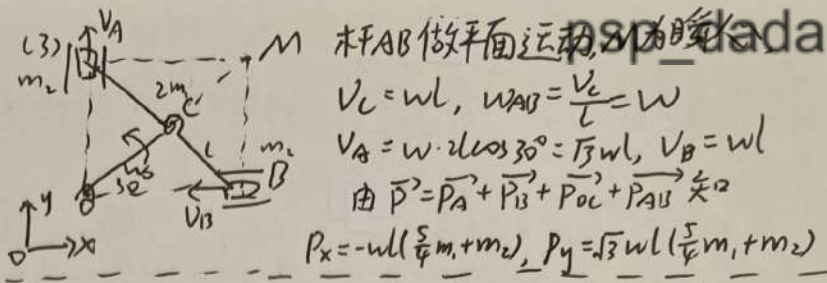 (3)
V_A
M
m₂
2m₁
C
l
ω
30
O
m₂
B
V_B
y
O
x
杆AB做平面运动, M为瞬心
psp_dada
V_C=ωl, ω_AB=V_C/l=ω
V_A=ω·2lcos30°=√3ωl, V_B=ωl
由 P⃗=P_A⃗+P_B⃗+P_OC⃗+P_AB⃗ 知
P_x=-ωl(5/4 m₁+m₂), P_y=√3ωl(5/4 m₁+m₂)